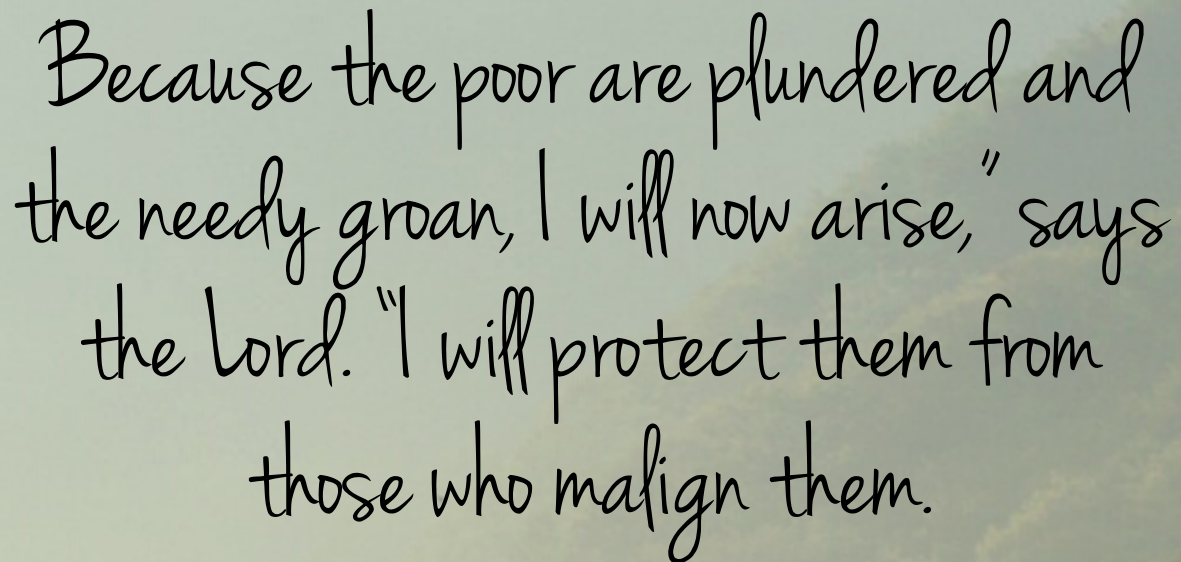 Because the poor are plundered and
the needy groan, I will now arise,” says
the Lord. “I will protect them from
those who malign them.